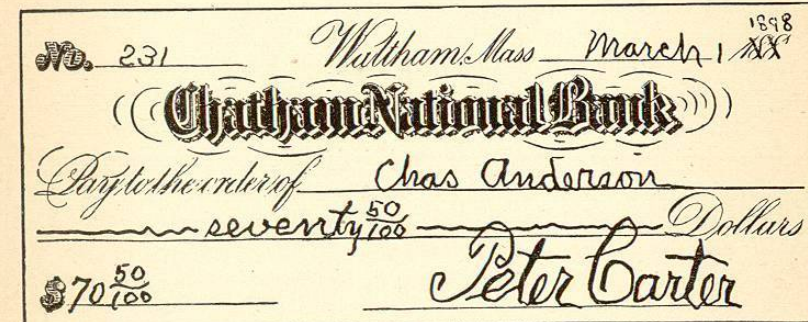 No. 231 Waltham, Mass March 1 1898
Chatham National Bank
Pay to the order of Chas Anderson
seventy 50/100 Dollars
$70 50/100 Peter Carter